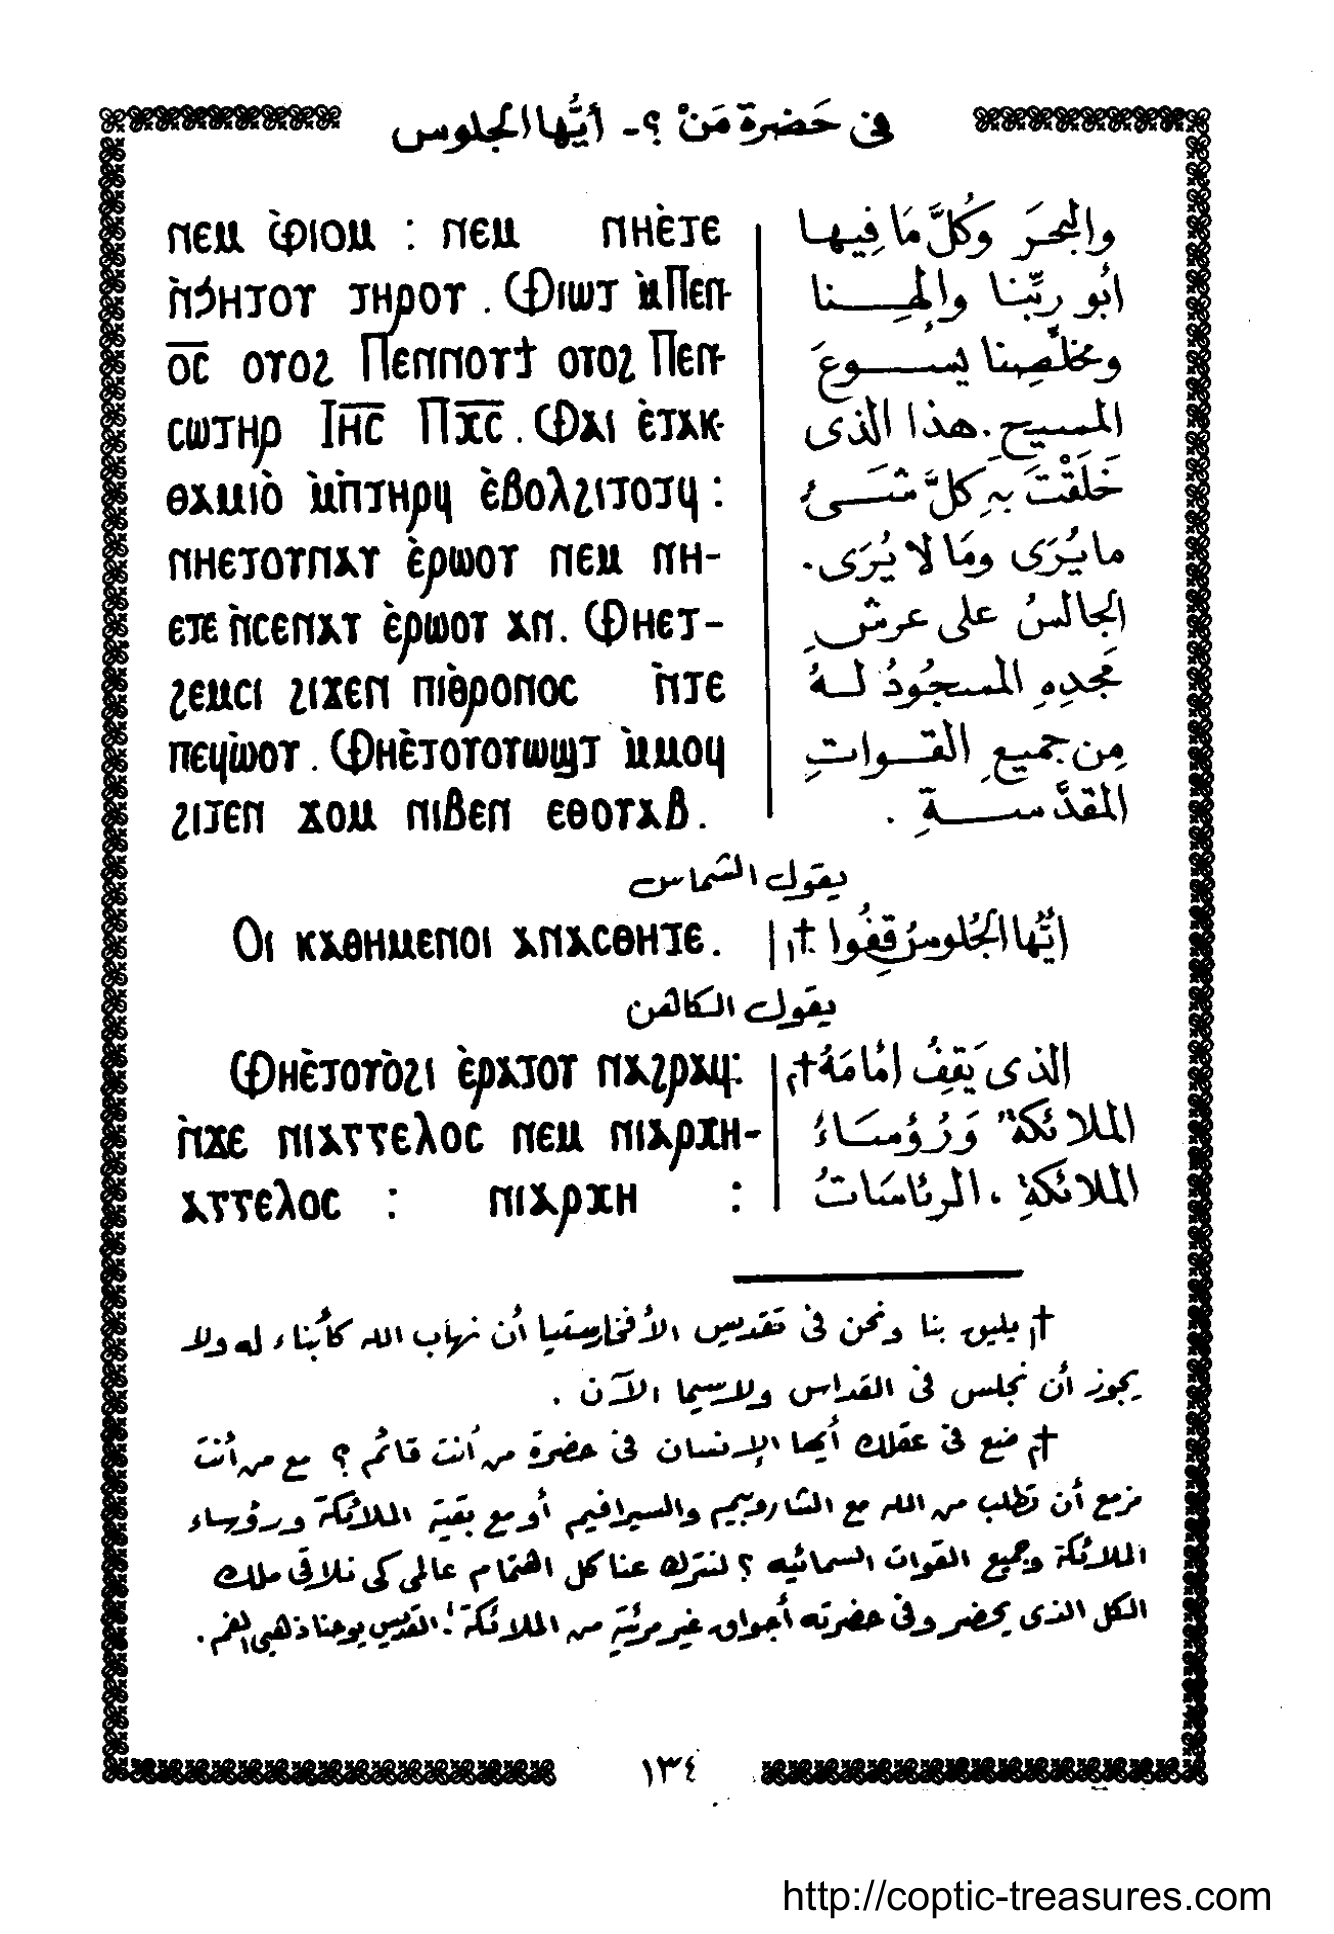 فى حَضرة مَنْ ؟ - أيُّها الجلوس
ⲛⲉⲙ ⲫ̀ⲓⲟⲙ : ⲛⲉⲙ ⲛⲏⲉ̀ⲧⲉ
ⲛ̀ϧⲏⲧⲟⲩ ⲧⲏⲣⲟⲩ . Ⲫⲓⲱⲧ ⲙ̀Ⲡⲉⲛ-
ⲟ̅ⲥ̅ ⲟⲩⲟϩ Ⲡⲉⲛⲛⲟⲩϯ ⲟⲩⲟϩ Ⲡⲉⲛ-
ⲥⲱⲧⲏⲣ Ⲓⲏ̅ⲥ̅ Ⲡⲭ̅ⲥ̅ . Ⲫⲁⲓ ⲉ̀ⲧⲁⲕ-
ⲑⲁⲙⲓⲟ̀ ⲙ̀ⲡ̀ⲧⲏⲣϥ ⲉ̀ⲃⲟⲗϩⲓⲧⲟⲧϥ :
ⲛⲏⲉⲧⲟⲩⲛⲁⲩ ⲉ̀ⲣⲱⲟⲩ ⲛⲉⲙ ⲛⲏ-
ⲉⲧⲉ ⲛ̀ⲥⲉⲛⲁⲩ ⲉ̀ⲣⲱⲟⲩ ⲁⲛ. Ⲫⲏⲉⲧ-
ϩⲉⲙⲥⲓ ϩⲓϫⲉⲛ ⲡⲓⲑ̀ⲣⲟⲛⲟⲥ ⲛ̀ⲧⲉ
ⲡⲉϥⲱ̀ⲟⲩ . Ⲫⲏⲉ̀ⲧⲟⲩⲟⲩⲱϣⲧ ⲙ̀ⲙⲟϥ
ϩⲓⲧⲉⲛ ϫⲟⲙ ⲛⲓⲃⲉⲛ ⲉⲑⲟⲩⲁⲃ.
والبحرَ وكُلَّ مَا فِيها
أبو ربِّنا وإلهِنا
ومخلِّصِنا يسوعَ
المسيح. هذا الذى
خَلَقْتَ بِهِ كلَّ شَىءٍ
ما يُرَى ومَا لا يُرَى.
الجالسُ على عرشِ
مَجدِهِ المسجُودُ لهُ
مِن جميعِ القواتِ
المقدَّسةِ .
يقول الشماس
Ⲟⲓ ⲕⲁⲑⲏⲙⲉⲛⲟⲓ ⲁⲛⲁⲥⲑⲏⲧⲉ.
أيُّها الجُلوسُ قِفُوا †١
يقول الكاهن
Ⲫⲏⲉ̀ⲧⲟⲩⲟ̀ϩⲓ ⲉ̀ⲣⲁⲧⲟⲩ ⲛⲁϩⲣⲁϥ:
ⲛ̀ϫⲉ ⲛⲓⲁⲅⲅⲉⲗⲟⲥ ⲛⲉⲙ ⲛⲓⲁⲣⲭⲏ-
ⲁⲅⲅⲉⲗⲟⲥ : ⲛⲓⲁⲣⲭⲏ :
الذى يَقِفُ أمَامَهُ †٢
الملائكةُ وَرُؤسَاءُ
الملائكةِ ، الرئاسَاتُ
†١ يليق بنا ونحن فى تقديس الأفخارستيا أن نهاب الله كأبناء له ولا
يجوز أن نجلس فى القداس ولاسيما الآن .
†٢ ضع فى عقلك أيها الإنسان فى حضرة من أنت قائم ؟ مع من أنت
مزمع أن تطلب من الله مع الشاروبيم والسيرافيم أو مع بقية الملائكة ورؤساء
الملائكة وجميع القوات السمائيه ؟ لنترك عنا كل اهتمام عالمى كى نلاقى ملك
الكل الذى يحضر وفى حضرته أجواق غير مرئية من الملائكة ! القديس يوحنا ذهبى الفم .
١٣٤
http://coptic-treasures.com